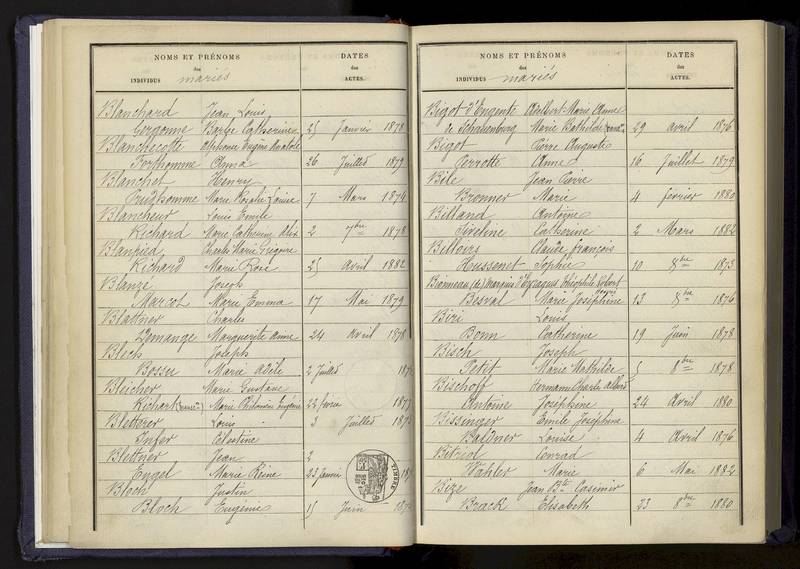 NOMS ET PRÉNOMS DATES
des des
INDIVIDUS mariés ACTES.
Blanchard Jean Louis
Gergonne Barbe Catherine 25 Janvier 1878
Blanchecotte Alphonse Eugène Anatole
Porthomme Anna 26 Juillet 1879
Blanchet Henry
Prudhomme Marie Rosalie Louise 7 Mars 1874
Blancheur Louis Emile
Richard Marie Catherine Alix 2 7bre 1878
Blanpied Charles Marie Grégoire
Richard Marie Rose 25 Avril 1882
Blanzé Joseph
Marcot Marie Emma 17 Mai 1879
Blattner Charles
Demange Marguerite Anne 24 Avril 1878
Blech Joseph
Bossu Marie Adèle 2 Juillet
Bleicher Marie Gustave
Richart Marie Philomène Eugénie 22 février 1877
Blettner Louis
Infer Célestine 3 Juillet
Blettner Jean
Engel Marie Reine 23 Janvier
Bloch Justin
Bloch Eugénie 15 Juin
NOMS ET PRÉNOMS DATES
des des
INDIVIDUS mariés ACTES.
Bigot d'Engente Adelbert Marie Anne
de Schauenburg Marie Bathilde 29 avril 1876
Bigot Pierre Auguste
Perrotte Anne 16 Juillet 1879
Bile Jean Pierre
Bronner Marie 4 février 1880
Billand Antoine
Siveline Catherine 2 Mars 1882
Billoirs Claude françois
Houssenet Sophie 10 8bre 1873
Bionneau (de) Marquis d'Eyragues Théophile Robert
Desval Marie Joséphine 13 8bre 1876
Biri Louis
Bonn Catherine 19 Juin 1878
Bisch Joseph
Petit Marie Mathilde 5 8bre 1878
Bischoff Hermann Charles Albert
Antoine Joséphine 24 Avril 1880
Bissinger Emile Joséphine
Baldner Louise 4 Avril 1876
Bitziol Conrad
Wahler Marie 6 Mai 1882
Bize Jean Bte Casimir
Brack Elisabeth 23 8bre 1880